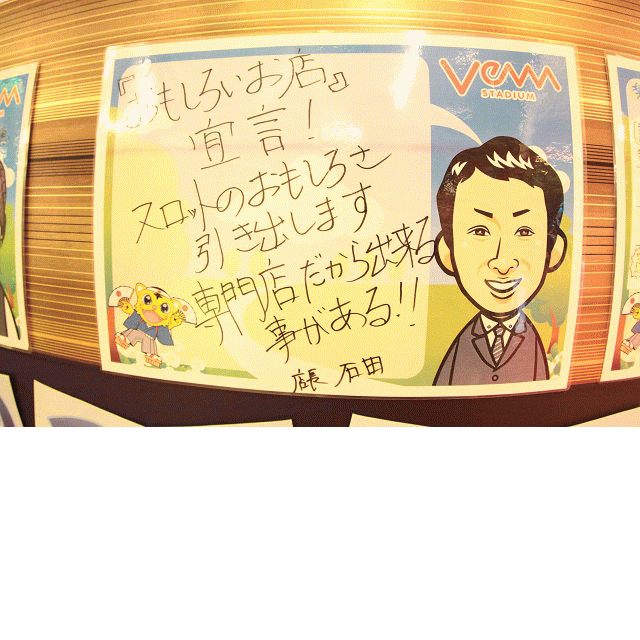 『おもしろいお店』
宣言！
スロットのおもしろさ
引き出します
専門店だから出来る
事がある!!
店長 石田
Venn
STADIUM